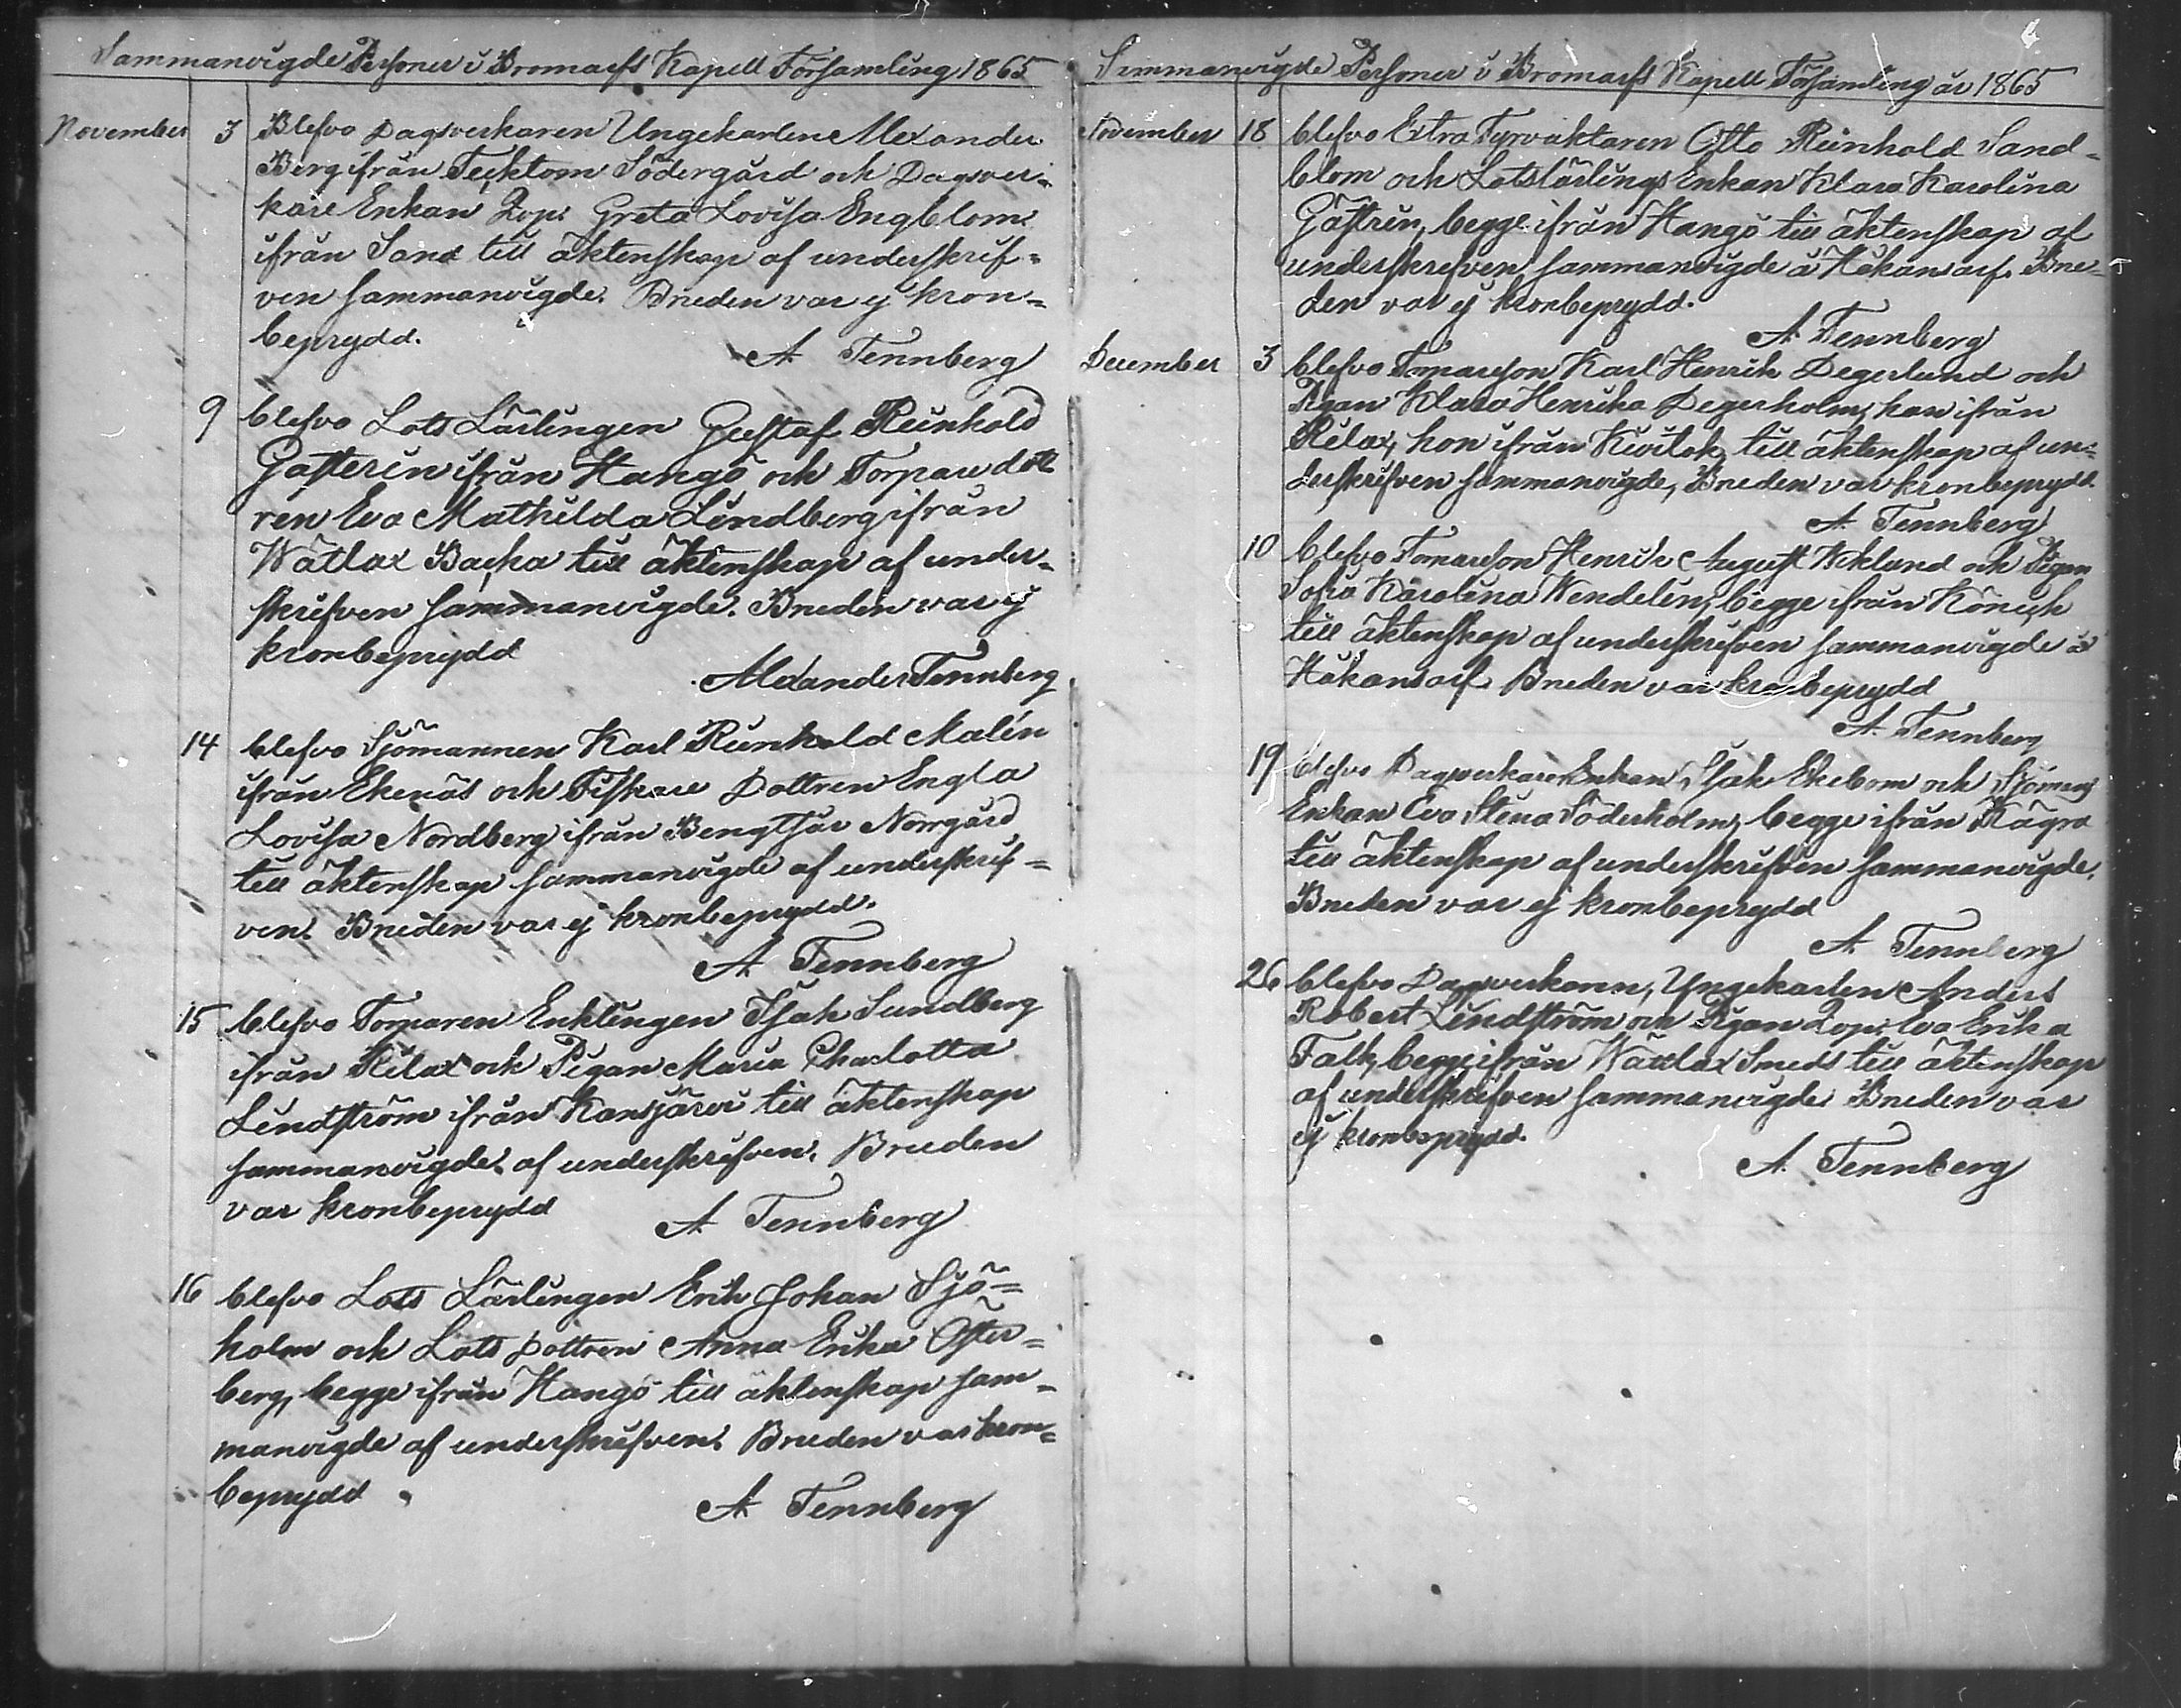 Sammanvigde Personer i Bromarfs Kapell Församling 1865
November 3 Blefvo Dagsverkaren Ungekarlen Alexander
Berg ifrån Tecktom Södergård och Dagsver-
kare Enkan Greta Lovisa Engblom
ifrån Sand till äktenskap af underskrif-
ven sammanvigde. Bruden var ej kron-
beprydd.
A Tennberg
9 blefvo Lots Lärlingen Gustaf Reinhold
Gasterin ifrån Hangö och Torpare dott
ren Eva Mathilda Lindberg ifrån
Wättlax Backa till äktenskap af under-
skrifven sammanvigde. Bruden var ej
kronbeprydd
Alexander Tennberg
14 blefvo Sjömannen Karl Reinhold Malin
ifrån Ekenäs och Fiskare Dottren Engla
Lovisa Nordberg ifrån Bengtsår Norrgård
till äktenskap sammanvigde af underskrif-
ven. Bruden var ej kronbeprydd.
A Tennberg
15 blefvo Torparen Enklingen Isak Sundberg
ifrån Rilax och Pigan Maria Charlotta
Lindström ifrån Kansjärvi till äktenskap
sammanvigde af underskrifven. Bruden
var kronbeprydd
A Tennberg
16 blefvo Lots Lärlingen Erik Johan Sjö-
holm och Lots Dottren Anna Erika Öster-
berg, begge ifrån Hangö till äktenskap sam-
manvigde af underskrifven. Bruden var kron-
beprydd
A Tennberg
Sammanvigde Personer i Bromarfs Kapell Församling år 1865
November 18 blefvo Extra Fyrvaktaren Otto Reinhold Sand-
blom och Lotslärlings Enkan Klara Karolina
Gästrin, begge ifrån Hangö till äktenskap af
underskrefven sammanvigde å Håkansarf. Bru-
den var ej kronbeprydd.
A Tennberg
December 3 blefvo Torpareson Karl Henrik Degerlund och
Pigan Klara Henrika Degerholm, han ifrån
Rilax, hon ifrån Kivitok till äktenskap af un-
derskrifven sammanvigde, Bruden var kronbeprydd.
A Tennberg
10 blefvo Torpareson Henrik August Wiklund och Pigan
Sofia Karolina Wendelin, begge ifrån
till äktenskap af underskrifven sammanvigde å
Håkansarf. Bruden var kronbeprydd
A Tennberg
19 blefvo Dagsverkare Enkan Isak Ekebom och Sjömans
Enkan Eva Stina Söderholm, begge ifrån Kägra
till äktenskap af underskrifven sammanvigde.
Bruden var ej kronbeprydd
A Tennberg
26 blefvo Dagsverkaren, Ungekarlen Anders
Robert Lindström och Pigan Eva Erika
Falk, begge ifrån Wättlax Smeds till äktenskap
af underskrifven sammanvigde. Bruden var
ej kronbeprydd.
A Tennberg